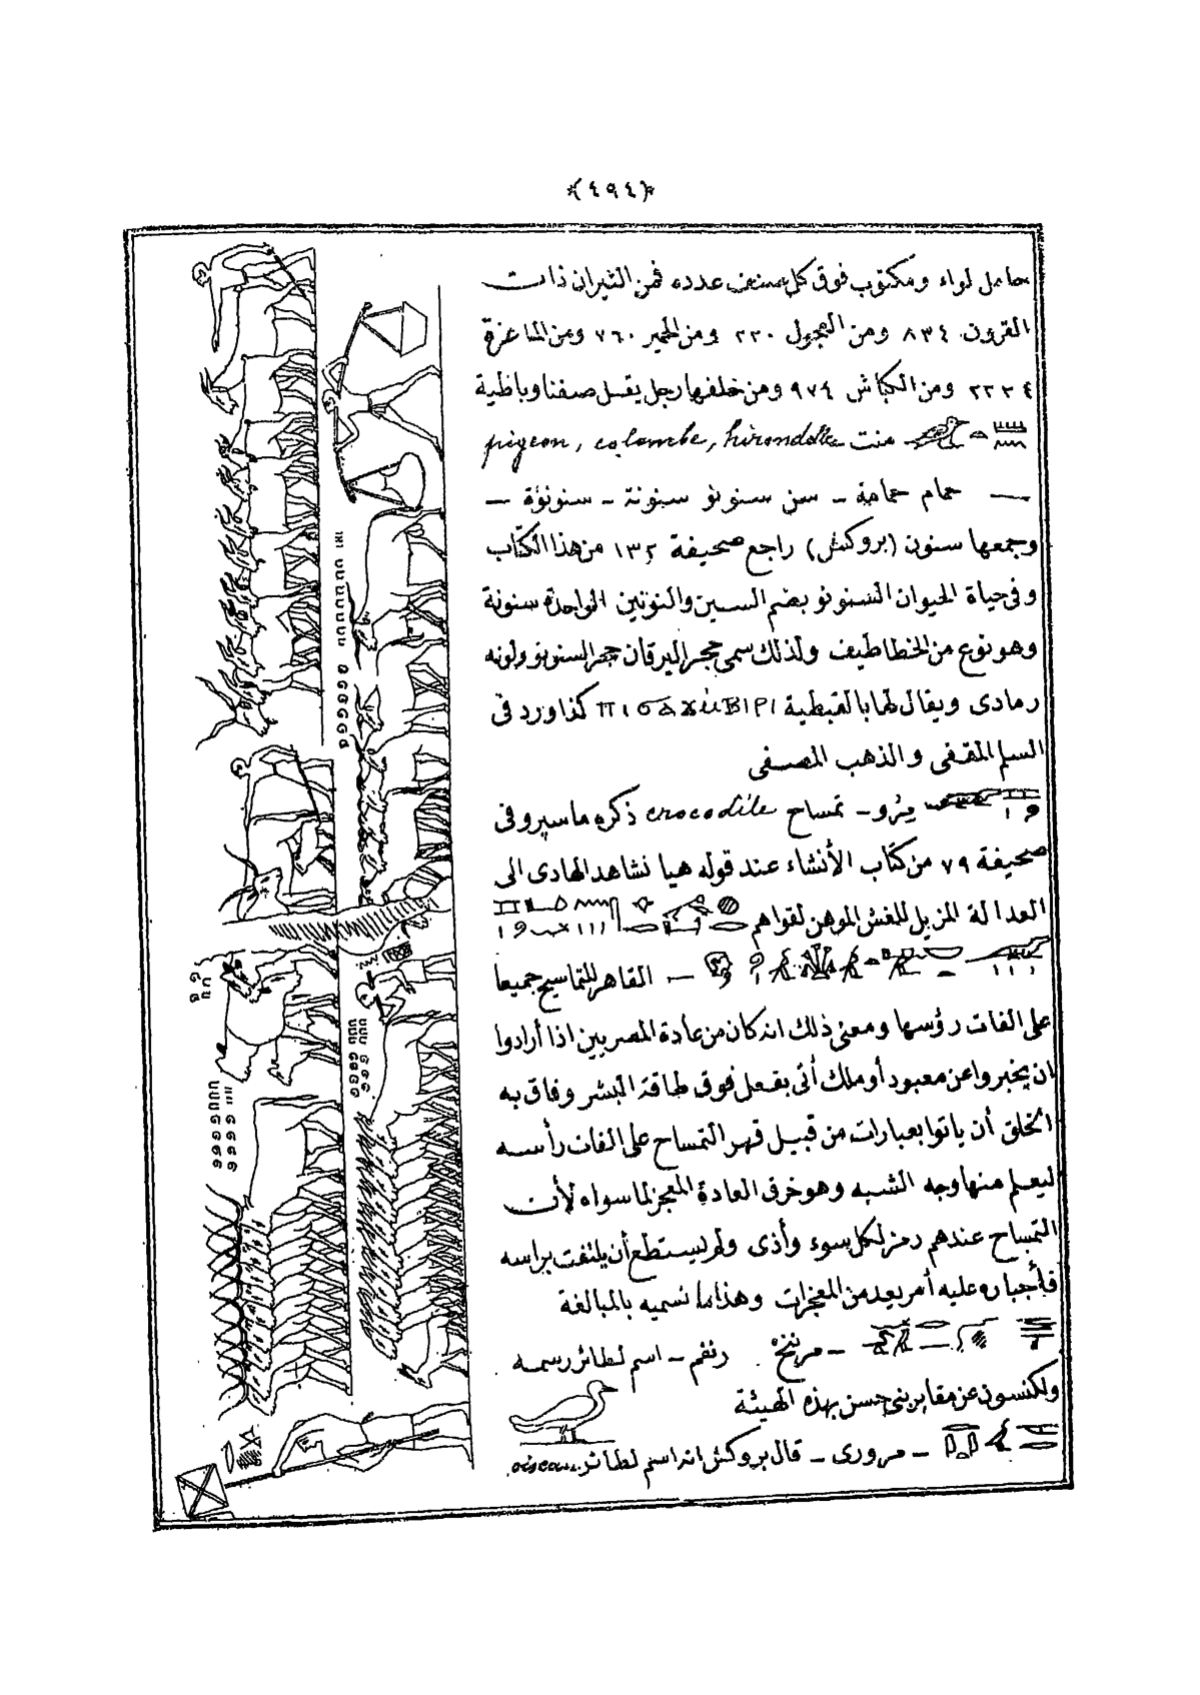 ﴿٤٩٤﴾
حامل لواء ومكتوب فوق كل صنف عدده فمن الثيران ذات
القرون ٨٣٤ ومن العجول ٢٢٠ ومن الحمير ٧٦٠ ومن الماعزة
٢٢٣٤ ومن الكباش ٩٧٤ ومن خلفها رجل يقسل صفنا وباطية
منت pigeon, colombe, hirondelle
— حمام حمامة - سن سنونو سنونة - سنونؤة —
وجمعها سنون (بروكش) راجع صحيفة ١٣٢ من هذا الكتاب
وفى حياة الحيوان السنونو بضم السين والنونين الواحدة سنونة
وهو نوع من الخطاطيف ولذلك سمى حجر اليرقان حجر السنونو ولونه
رمادى ويقال لها بالقبطية كذا ورد فى
السلم المقفى والذهب المصفى
- تمساح crocodile ذكره ماسپرو فى
صحيفة ٧٩ من كتاب الأنشاء عند قوله هيا نشاهد الهادى الى
العدالة المزيل للغش الموهن لقواهم
— القاهر للتماسيح جميعا
على الفات رؤسها ومعنى ذلك انه كان من عادة المصريين اذا أرادوا
ان يخبروا عن معبود أو ملك أتى بفعل فوق طاقة البشر وفاق به
الخلق أن ياتوا بعبارات من قبيل قهر التمساح على الفات رأسه
ليعلم منها وجه الشبه وهو خرق العادة المعجز لما سواه لأن
التمساح عندهم رمز لكل سوء وأذى ولم يستطع أن يلتفت براسه
فأجباره عليه أمر يعد من المعجزات وهذا ما نسميه بالمبالغة
- مرنخ رنفم - اسم لطائر رسمه
ولكنسون عن مقابر بنى حسن بهذه الهيئة
- مرورى - قال بروكش انه اسم لطائر oiseau.